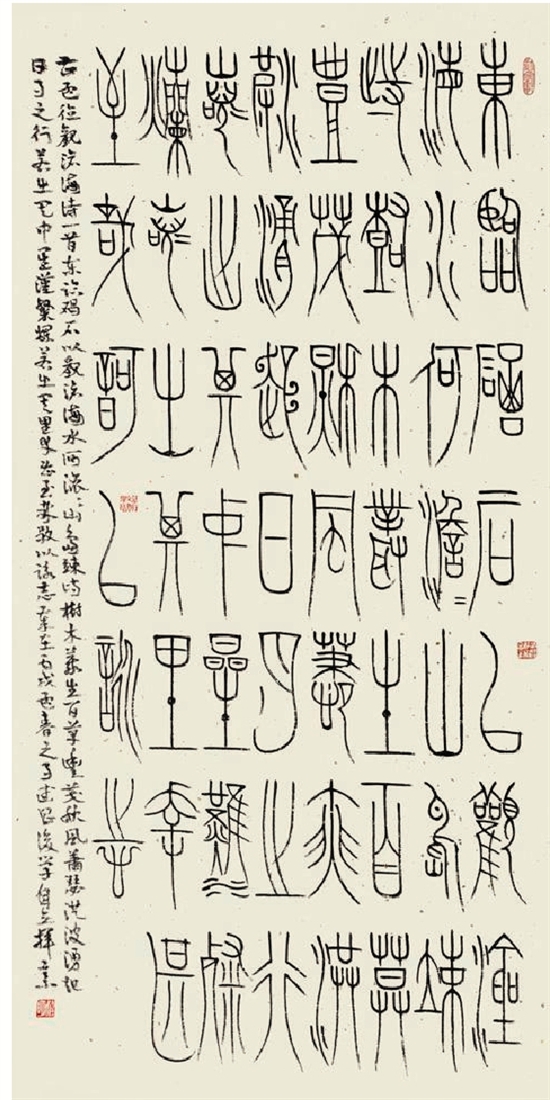 東臨碣石以觀滄
海水何澹=山島竦
峙樹木叢生百草
豐茂秋風蕭瑟洪
波涌起日月之行
若出其中星漢粲
爛若出其里幸甚
至哉歌以詠志
觀滄海詩一首東臨碣石以觀滄海水何澹=山島竦峙樹木叢生百草豐茂秋風蕭瑟洪波湧起
日月之行若出其中星漢粲爛若出其里幸甚至哉歌以詠志歲在丙戌春之月